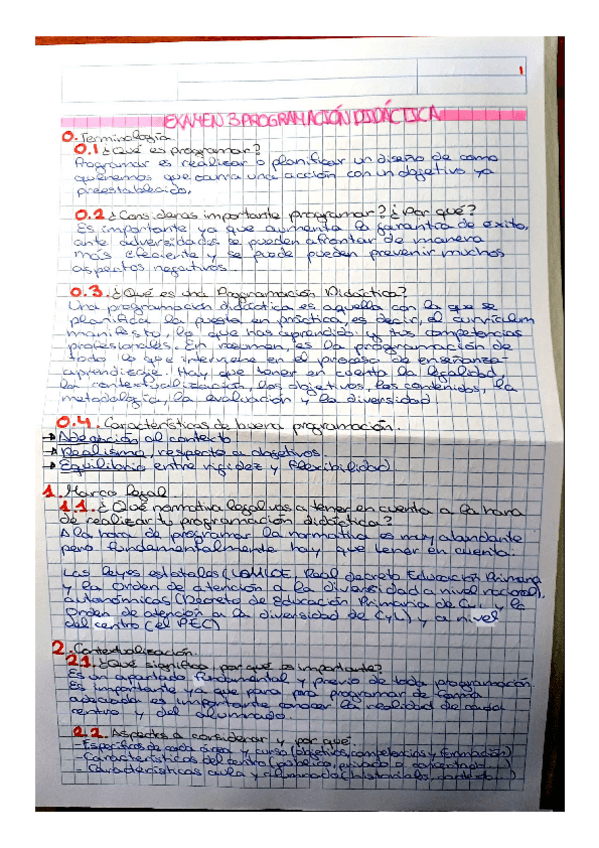 1
EXAMEN 3 PROGRAMACIÓN DIDÁCTICA
0. Terminología
0.1 ¿Qué es programar?
Programar es realizar o planificar un diseño de como
queremos que ocurra una acción con un objetivo ya
preestablecido.
0.2 ¿Consideras importante programar? ¿Por qué?
Es importante ya que aumenta la garantía de éxito,
ante adversidades se pueden afrontar de manera
más eficiente y se puede pueden prevenir muchos
aspectos negativos.
0.3. ¿Qué es una Programación Didáctica?
Una programación didáctica es aquella con la que se
planifica la puesta en práctica, es decir, el currículum
manifiesto, lo que has aprendido y tus competencias
profesionales. En resumen, es la programación de
todo lo que interviene en el proceso de enseñanza-
aprendizaje. Hay que tener en cuenta la legalidad,
la contextualización, los objetivos, los contenidos, la
metodología, la evaluación y la diversidad.
0.4. Características de buena programación.
→ Adecuación al contexto
→ Realismo, respecto a objetivos.
→ Equilibrio entre rigidez y flexibilidad
1. Marco legal
1.1. ¿Qué normativa legal vas a tener en cuenta a la hora
de realizar tu programación didáctica?
A la hora de programar la normativa es muy abundante
pero fundamentalmente hay que tener en cuenta:
Las leyes estatales (LOMLOE, Real decreto Educación Primaria
y la Orden de atención a la diversidad a nivel nacional),
autonómicas (Decreto de Educación Primaria de CyL y la
Orden de atención a la diversidad de CyL) y a nivel
del centro (el PEC)
2. Contextualización.
2.1. ¿Qué significa y por qué es importante?
Es un apartado fundamental y previo de toda programación
Es importante ya que para pro programar de forma
adecuada es importante conocer la realidad de cada
centro y del alumnado.
2.2. Aspectos a considerar y por qué
- Específicos de cada área y curso (objetivos, competencias y
- Características del centro (público, privado o concertado...)
- Características aula y alumnado (historiales, contexto...)